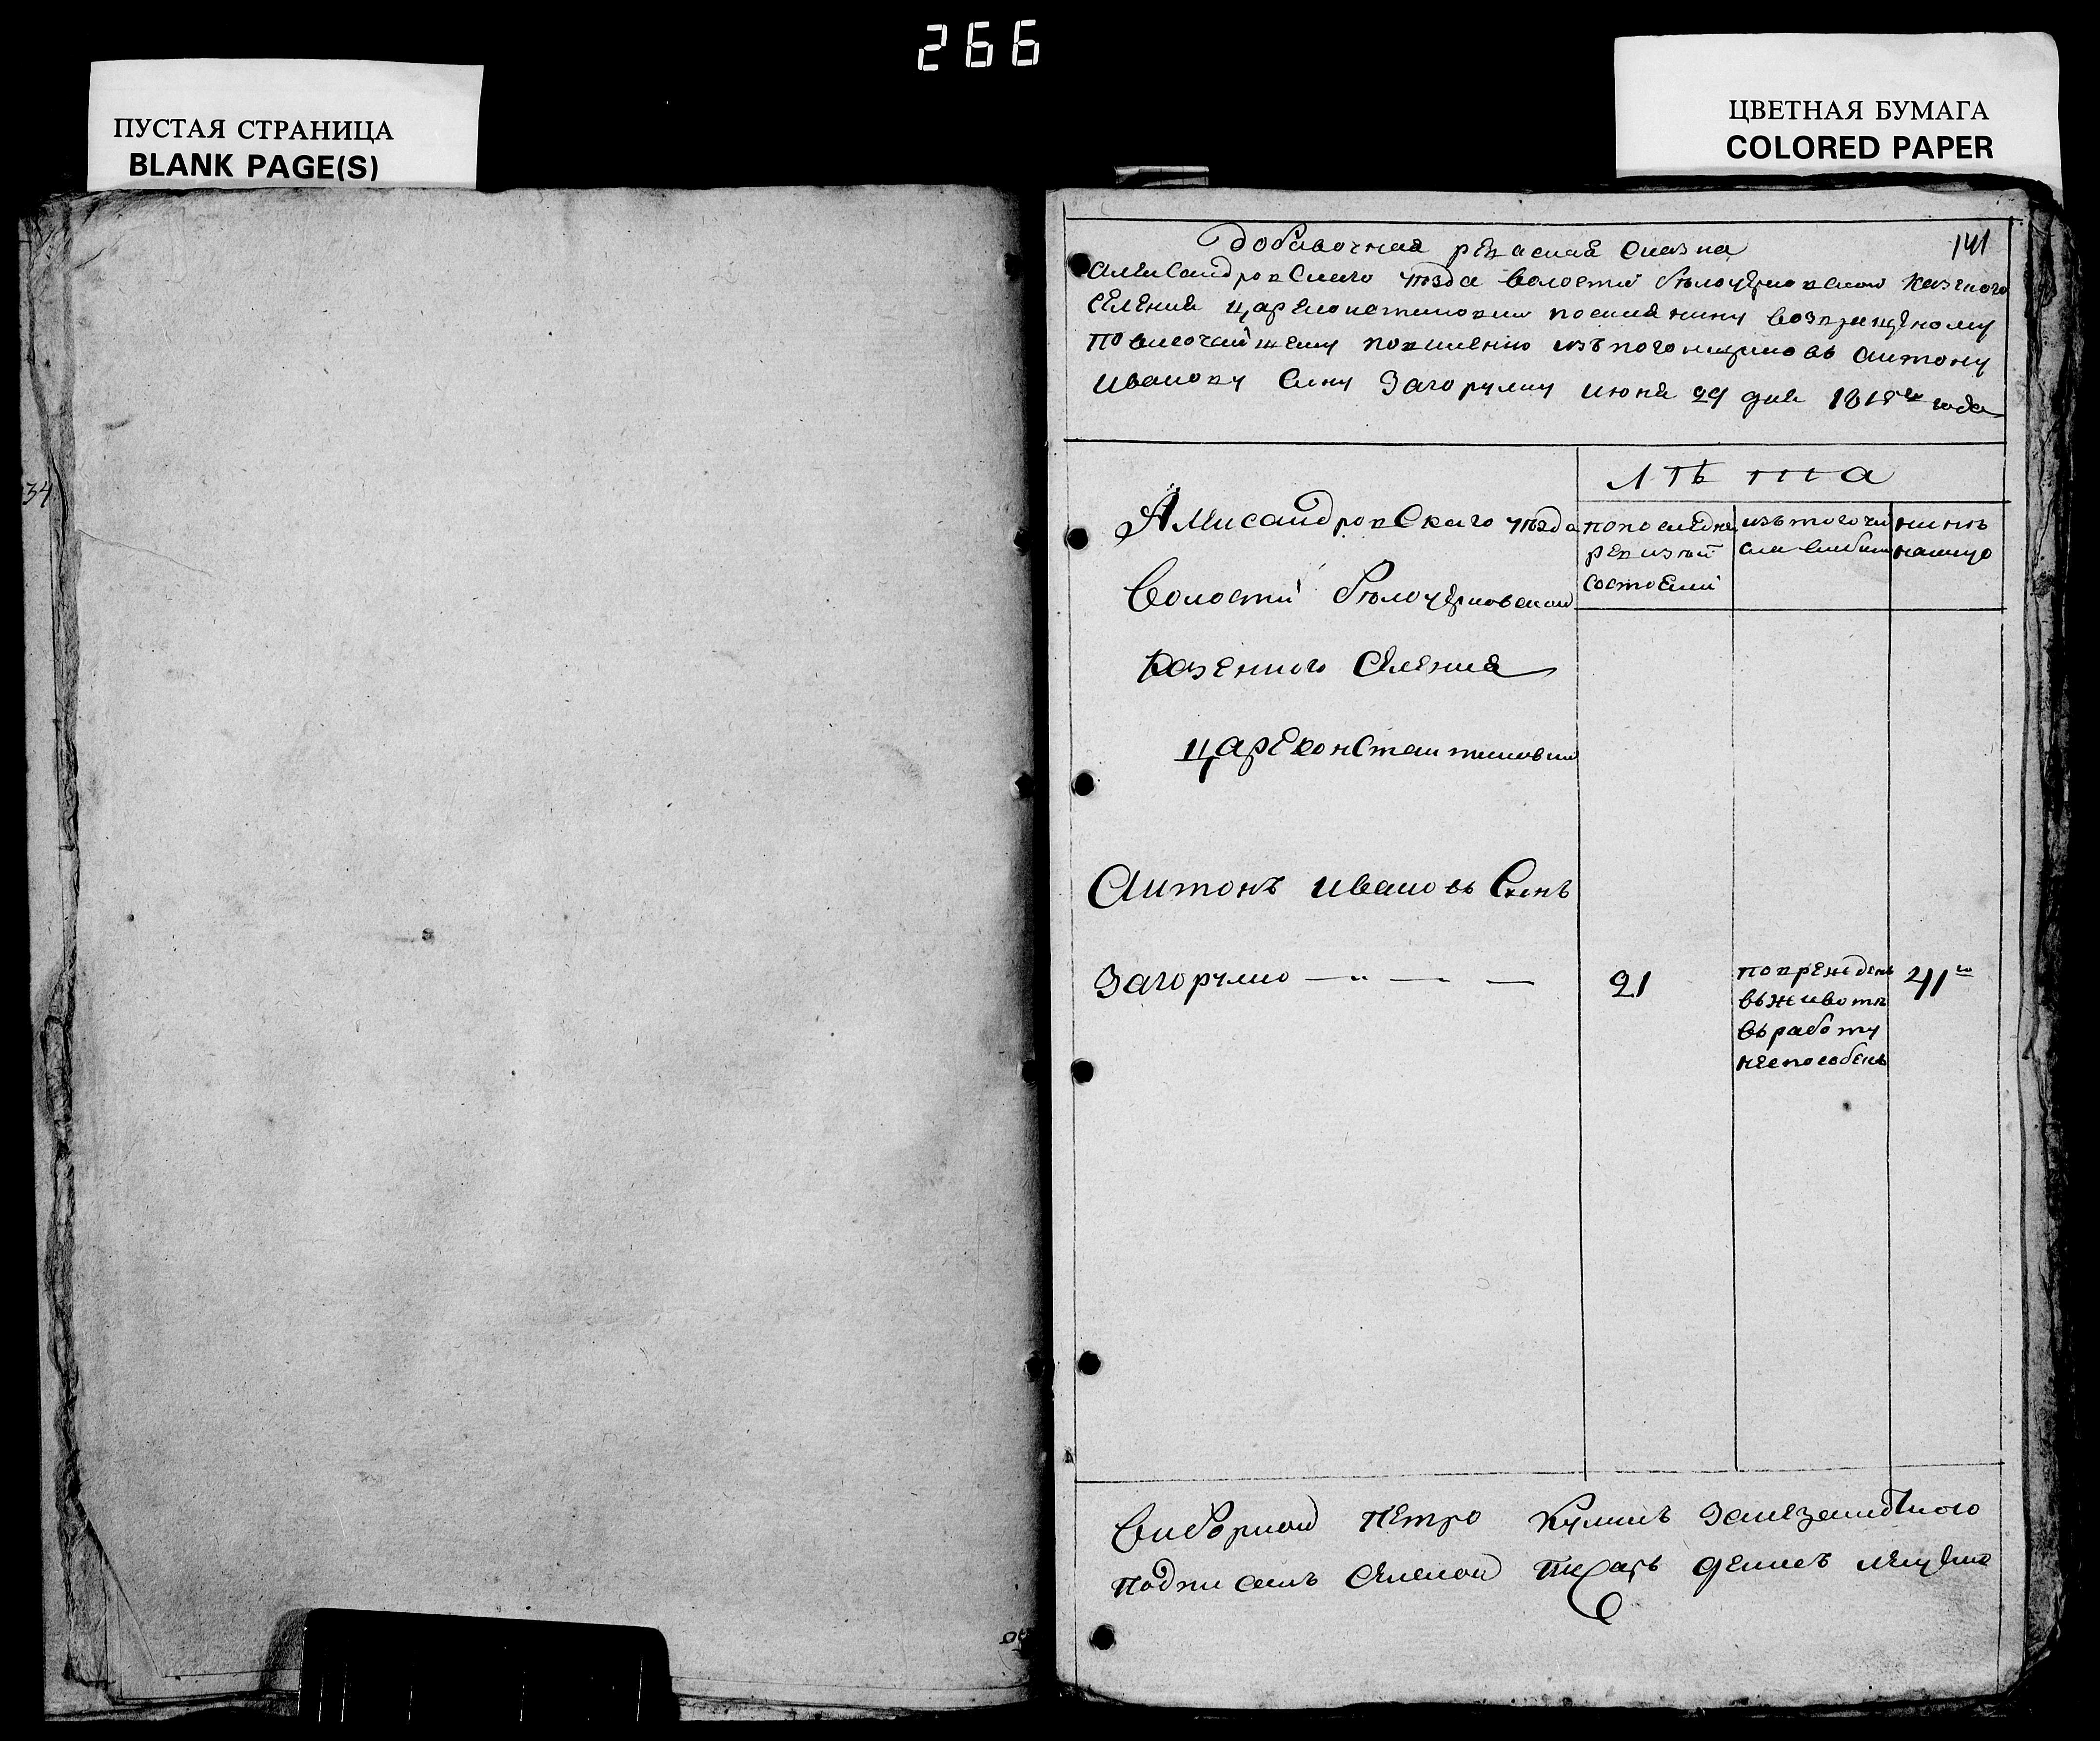 266
ПУСТАЯ СТРАНИЦА
BLANK PAGE(S)
ЦВЕТНАЯ БУМАГА
COLORED PAPER
34
141
Добавочная ревзская сказка
александровскаго уезда волости белоцерковской казеного
селения цареконстантиновки поселянину возвращеному
повисочайшему повелению изъ погонщиковъ антону
иванову сину Загорулку июня 29 дня 181 го года
лѣта
Александровскаго уезда
Волости белоцерковской
Казенного Селения
Цареконстантиновки
по последней
ревизии
состояли
изъ того чи
сла вибыли
нине
налицо
Антонъ ивановъ Синъ
Загорулко
21
повrежденъ
въ животе
въ работу
неспособенъ
41
Виборной Петро Куликъ
подписалъ Селской писарь денисъ